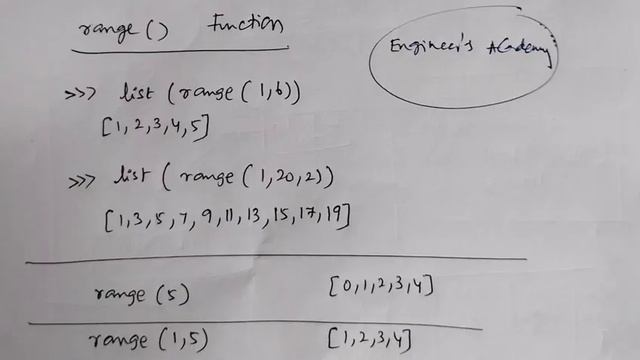 range() Function
Engineer's Academy
>>> list (range(1,6))
[1,2,3,4,5]
>>> list (range(1,20,2))
[1,3,5,7,9,11,13,15,17,19]
range (5) [0,1,2,3,4]
range (1,5) [1,2,3,4]